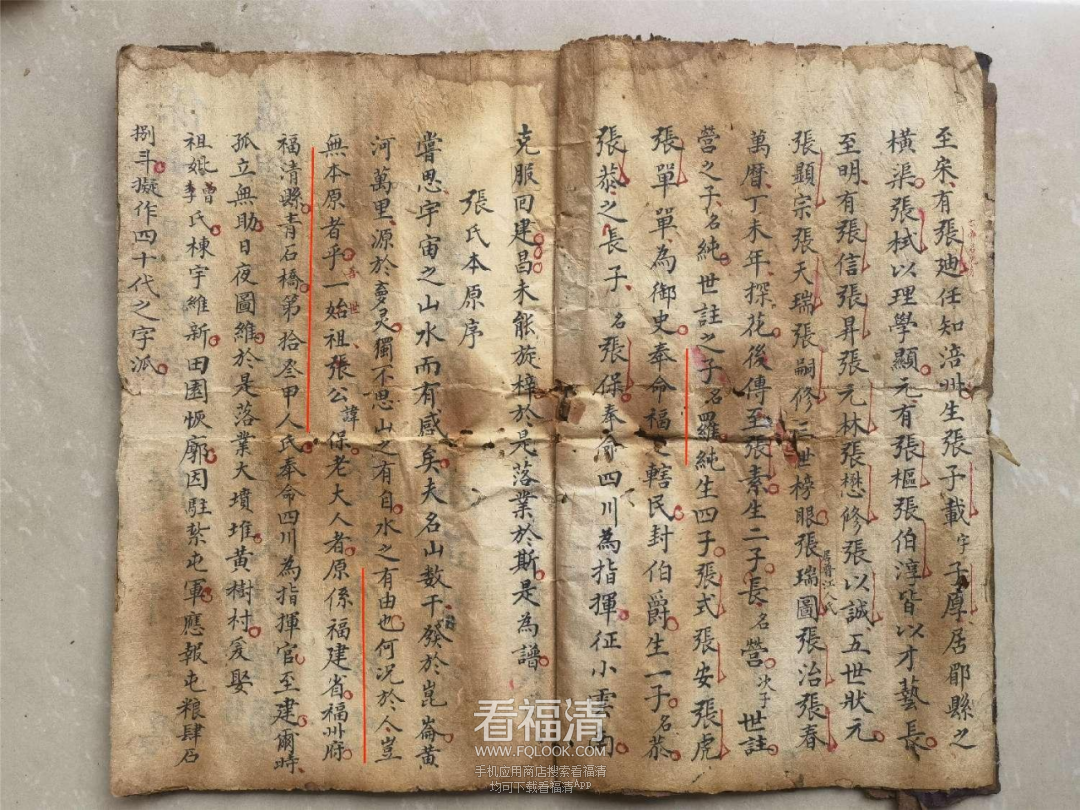 至宋有張廸任知涪州生張子載字子厚居郿縣之
橫渠張栻以理學顯元有張樞張伯淳皆以才藝長
至明有張信張昇張元林張懋修張以誠五世狀元
張顯宗張天瑞張嗣修三世榜眼張瑞圖晉江人氏張治張春
萬曆丁未年探花後傳至張素生二子長名營次子世註
營之子名純世註之子名羅純生四子張式張安張虎
張單單為御史奉命福之轄民封伯爵生一子名恭
張恭之長子名張保奉命四川為指揮征小雲南
克服回建昌未能旋梓於是落業於斯是為譜
張氏本原序
嘗思宇宙之山水而有感矣夫名山數千發於崑崙黃
河萬里源於獨不思山之有自水之有由也何況於人豈
無本原者乎一世始祖張公諱保老大人者原係福建省福州府
福清縣青石橋第拾叁甲人氏奉命四川為指揮官至建爾時
孤立無助日夜圖維於是落業大墳堆黃樹村爰娶
祖妣曾李氏棟宇維新田園恢廓因駐紮屯軍應報屯粮肆石
捌斗擬作四十代之字派
看福清
WWW.FQLOOK.COM
手机应用商店搜索看福清
均可下载看福清App